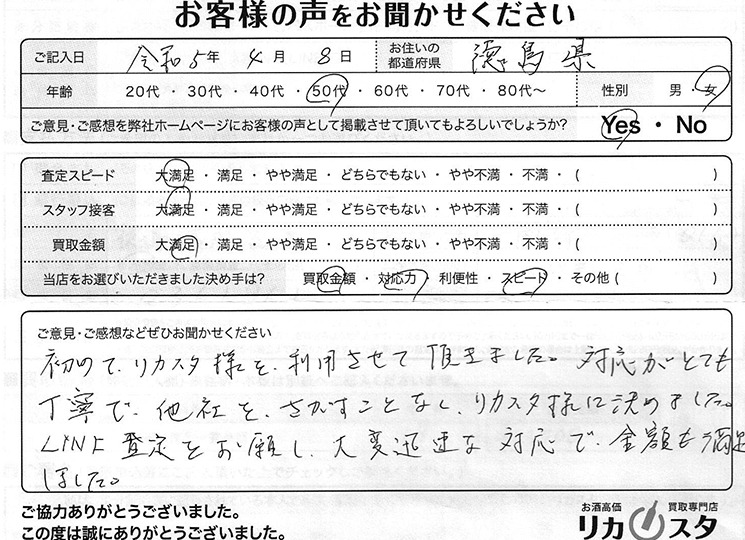 お客様の声をお聞かせください
ご記入日 令和5年 4月 8日 お住いの都道府県 徳島県
年齢 20代・30代・40代・50代・60代・70代・80代～ 性別 男・女
ご意見・ご感想を弊社ホームページにお客様の声として掲載させて頂いてもよろしいでしょうか？ Yes・No
査定スピード 大満足・満足・やや満足・どちらでもない・やや不満・不満・( )
スタッフ接客 大満足・満足・やや満足・どちらでもない・やや不満・不満・( )
買取金額 大満足・満足・やや満足・どちらでもない・やや不満・不満・( )
当店をお選びいただきました決め手は？ 買取金額・対応力・利便性・スピード・その他( )
ご意見・ご感想などぜひお聞かせください
初めて、リカスタ様を、利用させて頂きました。対応がとても
丁寧で、他社を、さがすことなく、リカスタ様に決めました。
LINE査定をお願いし、大変迅速な対応で、金額も満足
しました。
ご協力ありがとうございました。
この度は誠にありがとうございました。
お酒高価 買取専門店
リカスタ